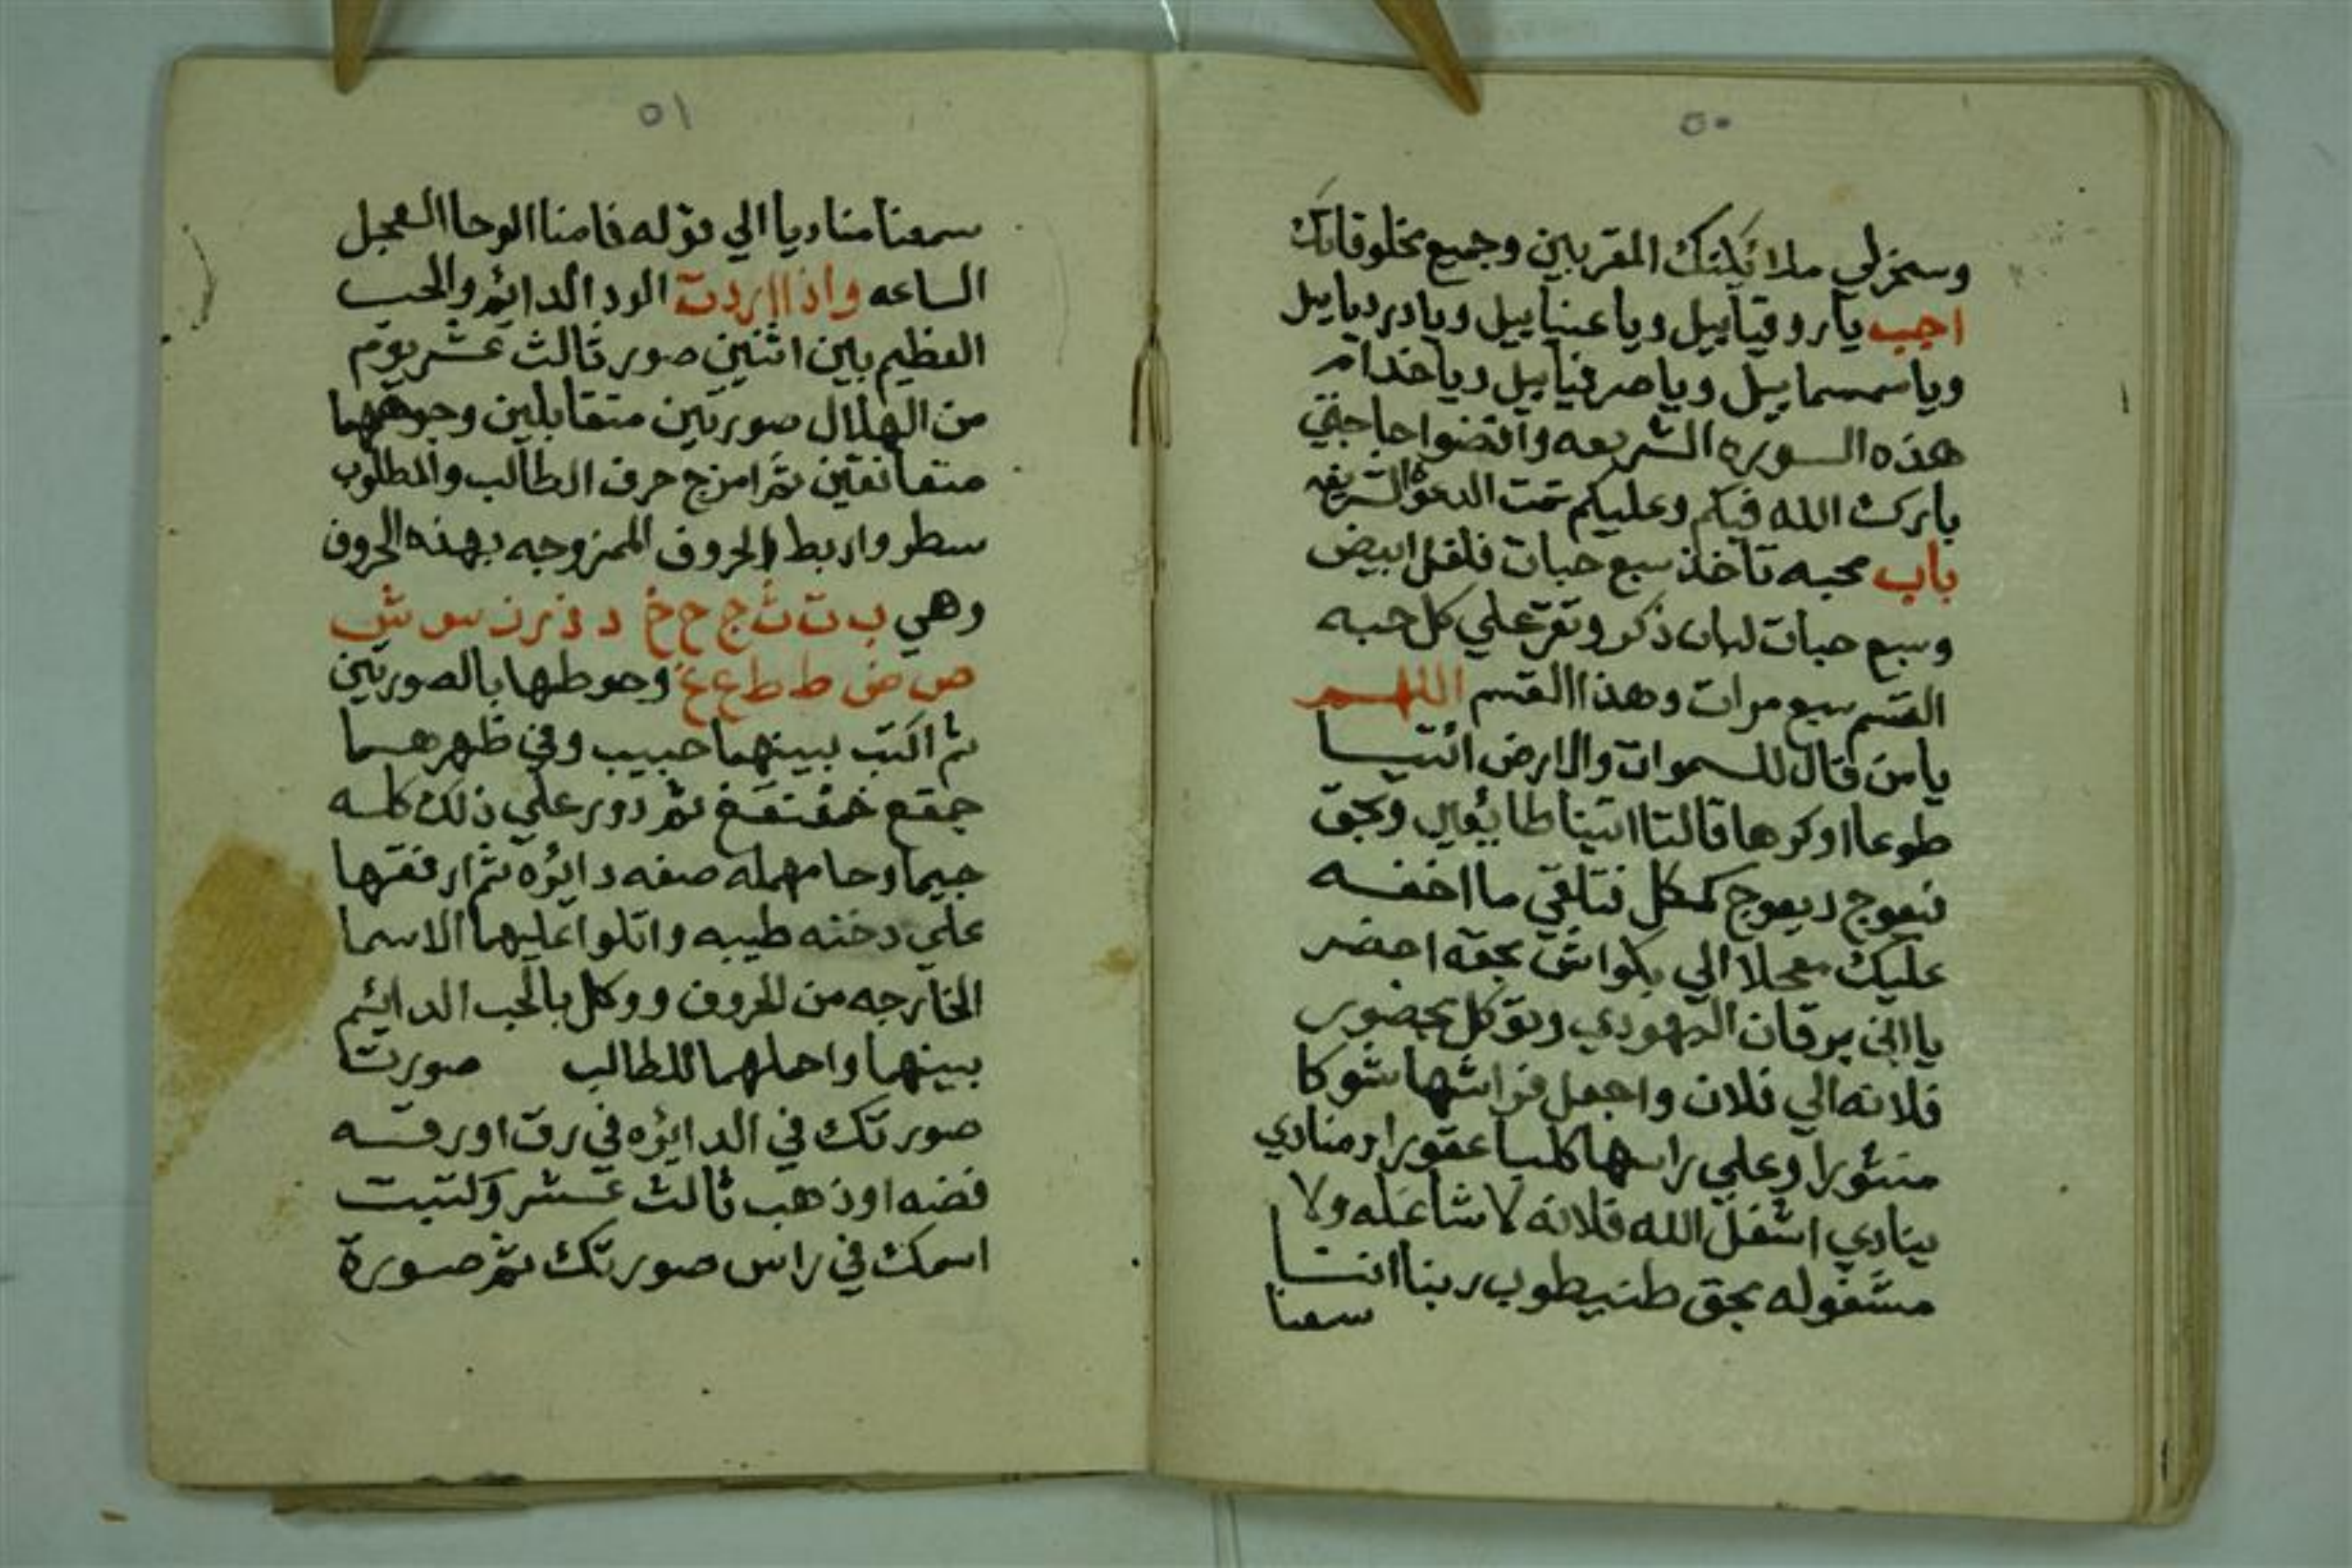 ٥٠
وسخرلي ملائكتك المقربين وجميع مخلوقاتك
اجب ياروقياييل وياعنياييل ويادرديابيل
وياسمسماييل وياصرفياييل وياخدام
هذه السوره الشريعه واقضوا حاجتي
بارك الله فيكم وعليكم تمت الدعوة الشريفه
باب محبه تاخذ سبع حبات فلفل ابيض
وسبع حبات لبان ذكر وتقرعلي كل حبه
القسم سبع مرات وهذا القسم اللهم
يامن قال للسموات والارض ائتيا
طوعا اوكرها قالتا اتينا طائعين وبحق
ديعوج كمكل فتلقي ما اخفه
عليك معجلا الي بحقه احضر
يا ابن برقان اليهودي وتوكل بحضور
فلانه الي فلان واجعل فراشها شوكا
منثورا وعلي راسها كلبا عقورا ومنادي
ينادي اشغل الله فلانه لا شاغله ولا
مشغوله بحق طنيطوب ربنا اننا
سمعنا
٥١
سمعنا مناديا الي قوله فامنا الوحا العجل
الساعه واذا اردت الود الدايم والحب
العظيم بين اثنين صور ثالث عشر يوم
من الهلال صورتين متقابلين وجوههما
متعانقين ثم امزج حرف الطالب والمطلوب
سطر واربط الحروف الممزوجه بهذه الحروف
وهي ب ت ث ج ح خ د ذ ر ز س ش
ص ض ط ظ ع غ وحوطها بالصورتين
ثم اكتب بينهما حبيب وفي ظهرهما
ثم دور علي ذلك كله
جيما وحا مهمله صفه دايره ثم ارفعها
علي دخنه طيبه واتلوا عليهما الاسما
الخارجه من الحروف ووكل بالحب الدايم
بينهما واحلهما للطالب صورت
صورتك في الدايره في رق او رقه
فضه او ذهب ثالث عشر وكتبت
اسمك في راس صورتك ثم صورة